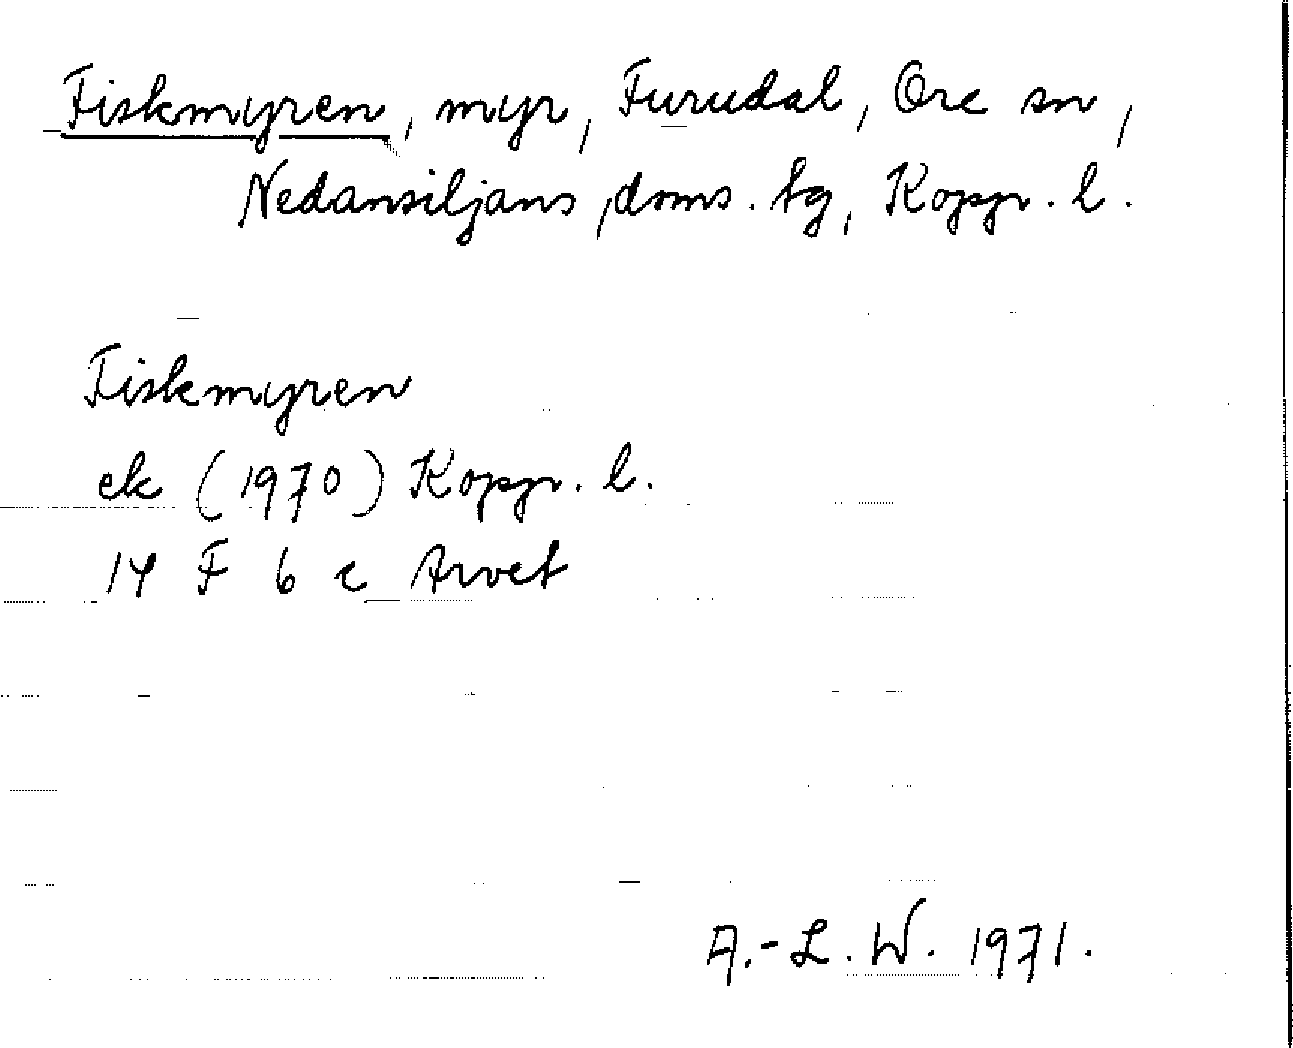 Fiskmyren, myr, Furudal, Ore sn,
Nedansiljans, doms. tg, Kopp. l.
Fiskmyren
ek (1970) Kopp. l.
14 F 6 c Arvet
A.-L. W. 1971.